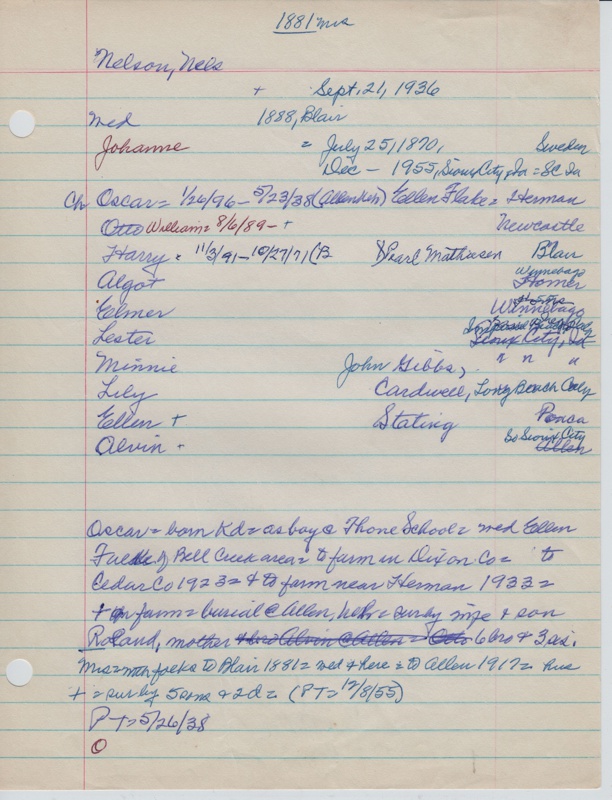 1881 mrs
Nelson, Nels
+ Sept. 21, 1936
med 1888, Blair
Johanne = July 25, 1870, Sweden
Dec - 1955, Sioux City, Ia = SC Ia
Ch Oscar = 1/26/96 - 5/23/38 (Allen Kin) Ellen Flake = Herman
Otto William = 8/6/89 - + Newcastle
Harry = 11/3/91 - 10/27/71 (B Pearl Mathiesen Blair
Algot Winnebago Homer
Elmer Winnebago
Lester Sioux City, Ia
Minnie John Gibbs, " " "
Lily Cardwell, Long Beach Calif
Ellen + Stating Ponca
Alvin - So Sioux City Allen
Oscar = born Kd = as boy @ Fhone School = med Ellen
of Bell Creek area = to farm in Dixon Co = to
Cedar Co 1923 = + to farm near Herman 1933 =
+ on farm = burial @ Allen, = surby wife + son
Roland, mother + bro Alvin @ Allen = 6 bro + 3 sis.
Mrs = with folks to Blair 1881 = med + here = to Allen 1917 = hus
+ = sur by 5 sons + 2 d = (PT = 12/8/55)
PT = 5/26/38